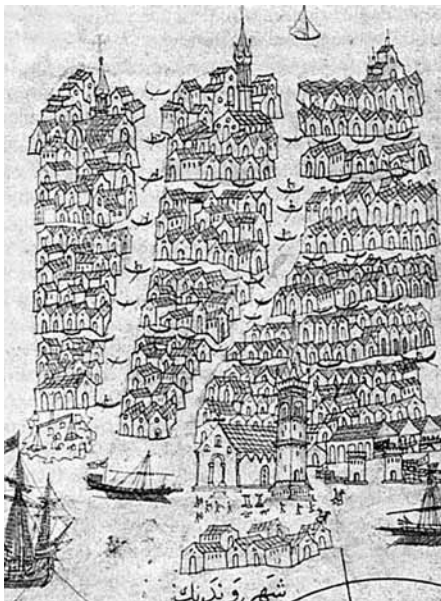 شَهرِ وَنَدِيك